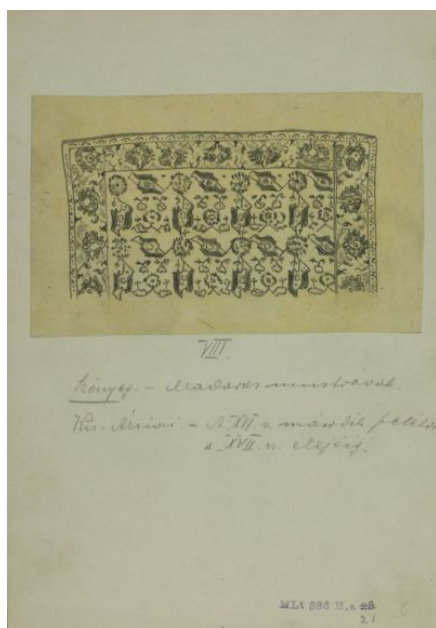 VIII.
Szőnyeg. – Madaras mustrával.
Kis-Ázsiai – A XVI. v. második felétől
a XVII. v. elejéig.
MLt 386 H. a 28
21
6